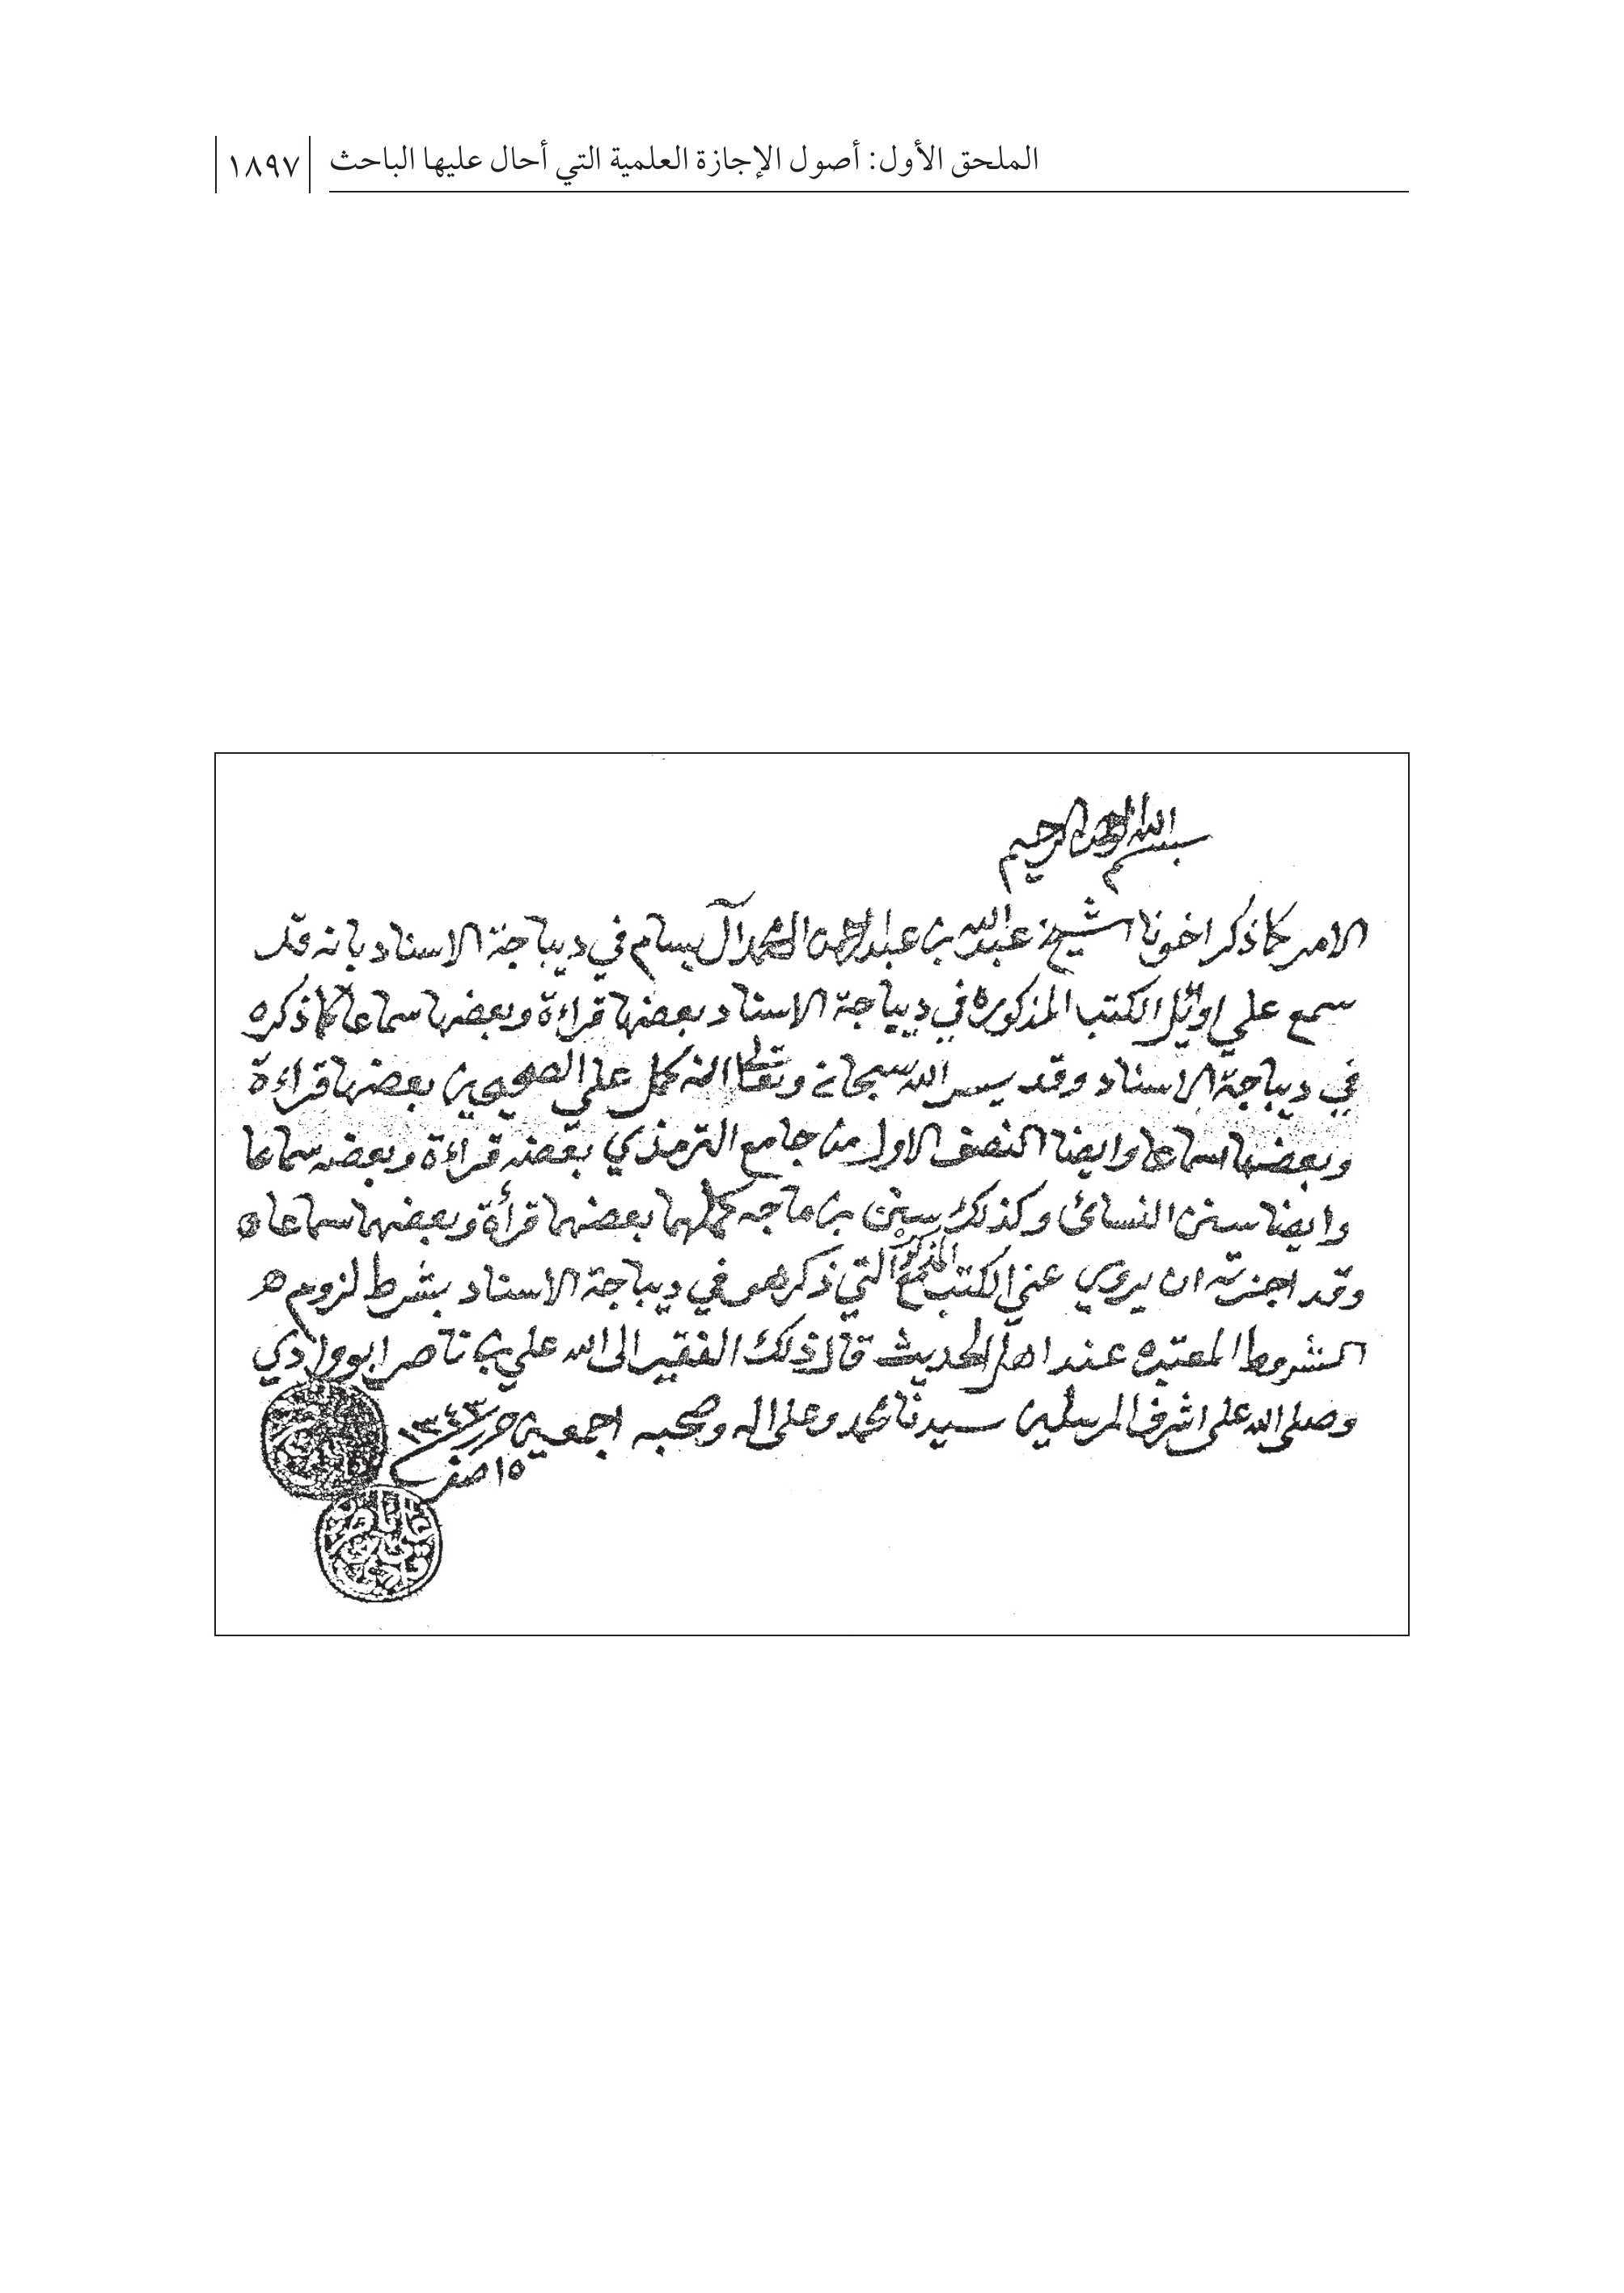 الملحق الأول: أصول الإجازة العلمية التي أحال عليها الباحث ١٨٩٧
بسم الله الرحمن الرحيم
الامر كما ذكر اخونا الشيخ عبدالله بن عبدالرحمن المحمد آل بسام في ديباجة الاسناد بانه قد
سمع علي اوئل الكتب المذكوره في ديباجة الاسناد بعضها قراءة وبعضها سماعا كما ذكره
في ديباجة الاسناد وقد يسر الله سبحانه وتعالى انه كمل على الصحيحين بعضها قراءة
وبعضها سماعا وايضا النصف الاول من جامع الترمذي بعضه قراءة وبعضه سماعا
وايضا سنن النسائ وكذلك سنن بن ماجه كملها بعضها قرأة وبعضها سماعا ه
وقد اجزته ان يروي عني الكتب المذكوره التي ذكر هو في ديباجة الاسناد بشرط لزوم
الشروط المعتبره عند اهل الحديث قال ذلك الفقير الى الله علي بن ناصر ابو وادي
وصلى الله على اشرف المرسلين سيدنا محمد وعلى اله وصحبه اجمعين حرر ١٣٤٣
١٥ صفر
علي ناصر